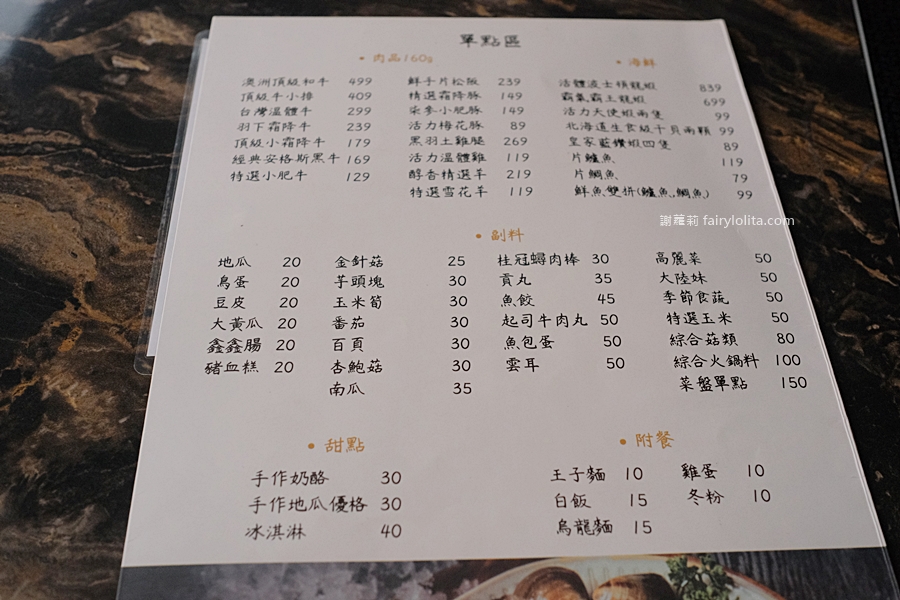 單點區
• 肉品160g
澳洲頂級和牛 499
頂級牛小排 409
台灣溫體牛 299
羽下霜降牛 239
頂級小霜降牛 179
經典安格斯黑牛 169
特選小肥牛 129
鮮子片松阪 239
精選霜降豚 149
柒參小肥豚 149
活力梅花豚 89
黑羽土雞腿 269
活力溫體雞 119
醇香精選羊 219
特選雪花羊 119
• 海鮮
活體波士頓龍蝦 839
霸氣霸王龍蝦 699
活力天使蝦兩隻 99
北海道生食級干貝兩顆 99
皇家藍鑽蝦四隻 89
片鱸魚 119
片鯛魚 79
鮮魚雙拼(鱸魚,鯛魚) 99
謝蘿莉 fairylolita.com
• 副料
地瓜 20
鳥蛋 20
豆皮 20
大黃瓜 20
鑫鑫腸 20
豬血糕 20
金針菇 25
芋頭塊 30
玉米筍 30
番茄 30
百頁 30
杏鮑菇 30
南瓜 35
桂冠蟳肉棒 30
貢丸 35
魚餃 45
起司牛肉丸 50
魚包蛋 50
雲耳 50
高麗菜 50
大陸妹 50
季節食蔬 50
特選玉米 50
綜合菇類 80
綜合火鍋料 100
菜盤單點 150
• 甜點
手作奶酪 30
手作地瓜優格 30
冰淇淋 40
• 附餐
王子麵 10
白飯 15
烏龍麵 15
雞蛋 10
冬粉 10